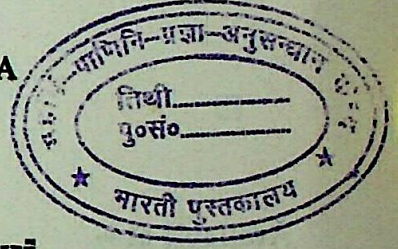 A
पाणिनि-प्रज्ञा-अनुसन्धान
तिथी
पु०सं०
★ भारती पुस्तकालय ★